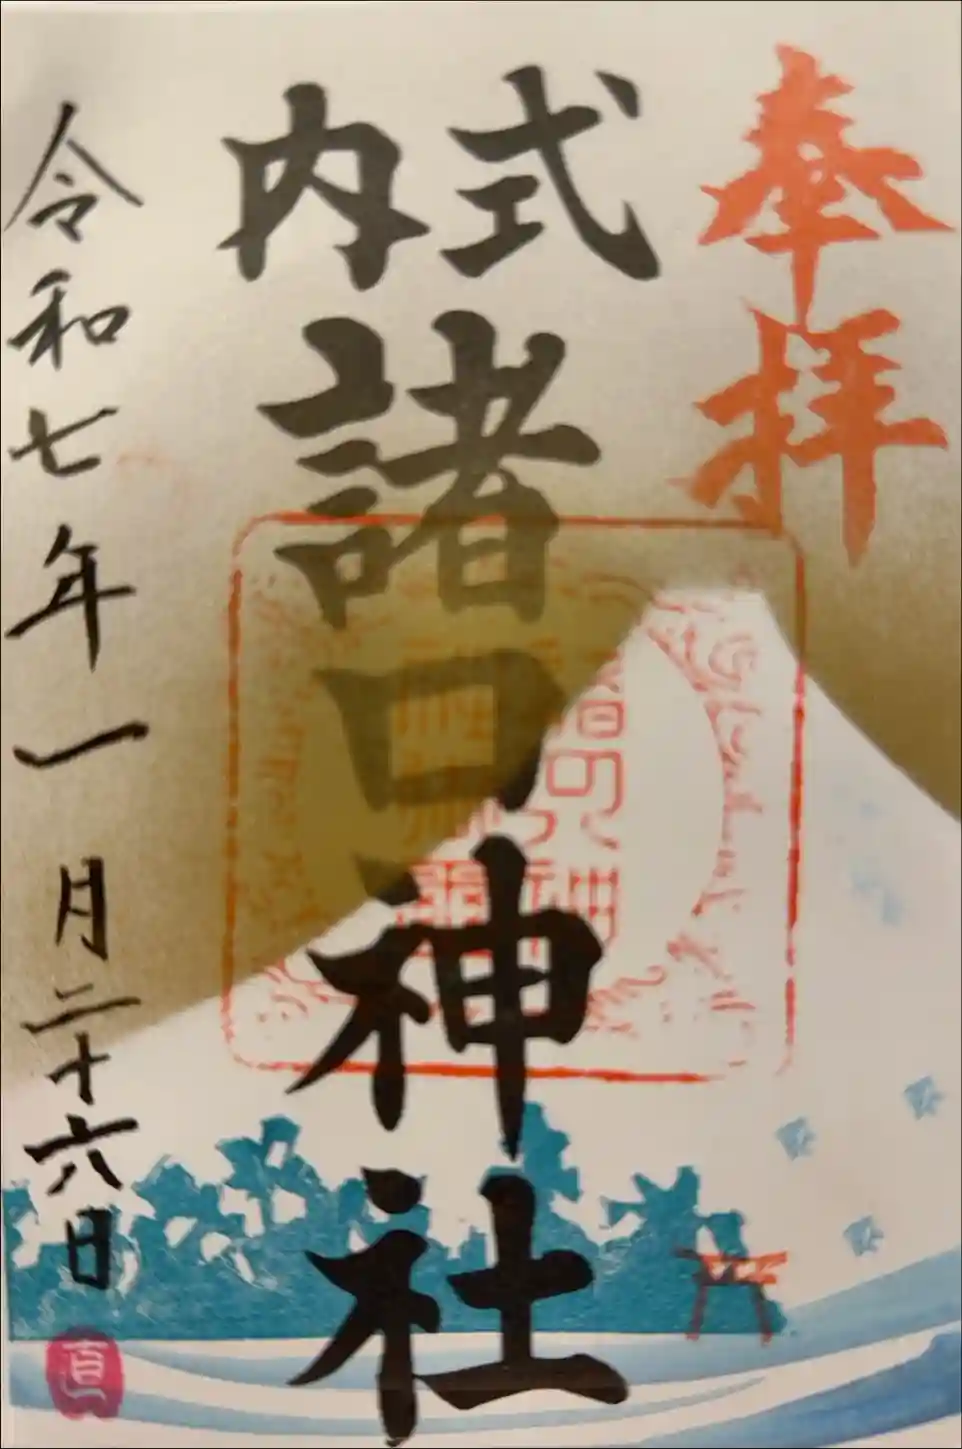 奉拝
式内
諸口神社
令和七年一月二十六日